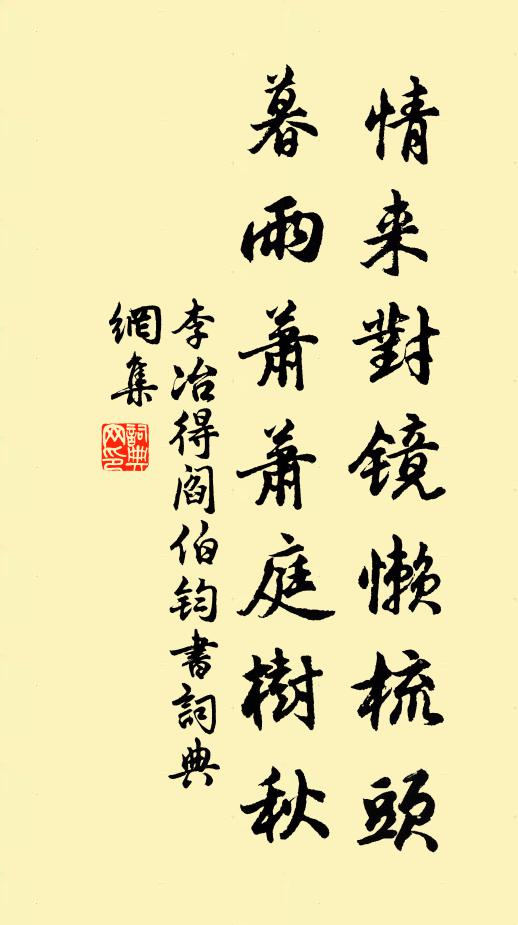 情来對鏡懶梳頭
暮雨蕭蕭庭樹秋
李冶得閻伯鈞書詞典
網集
詞典
网印